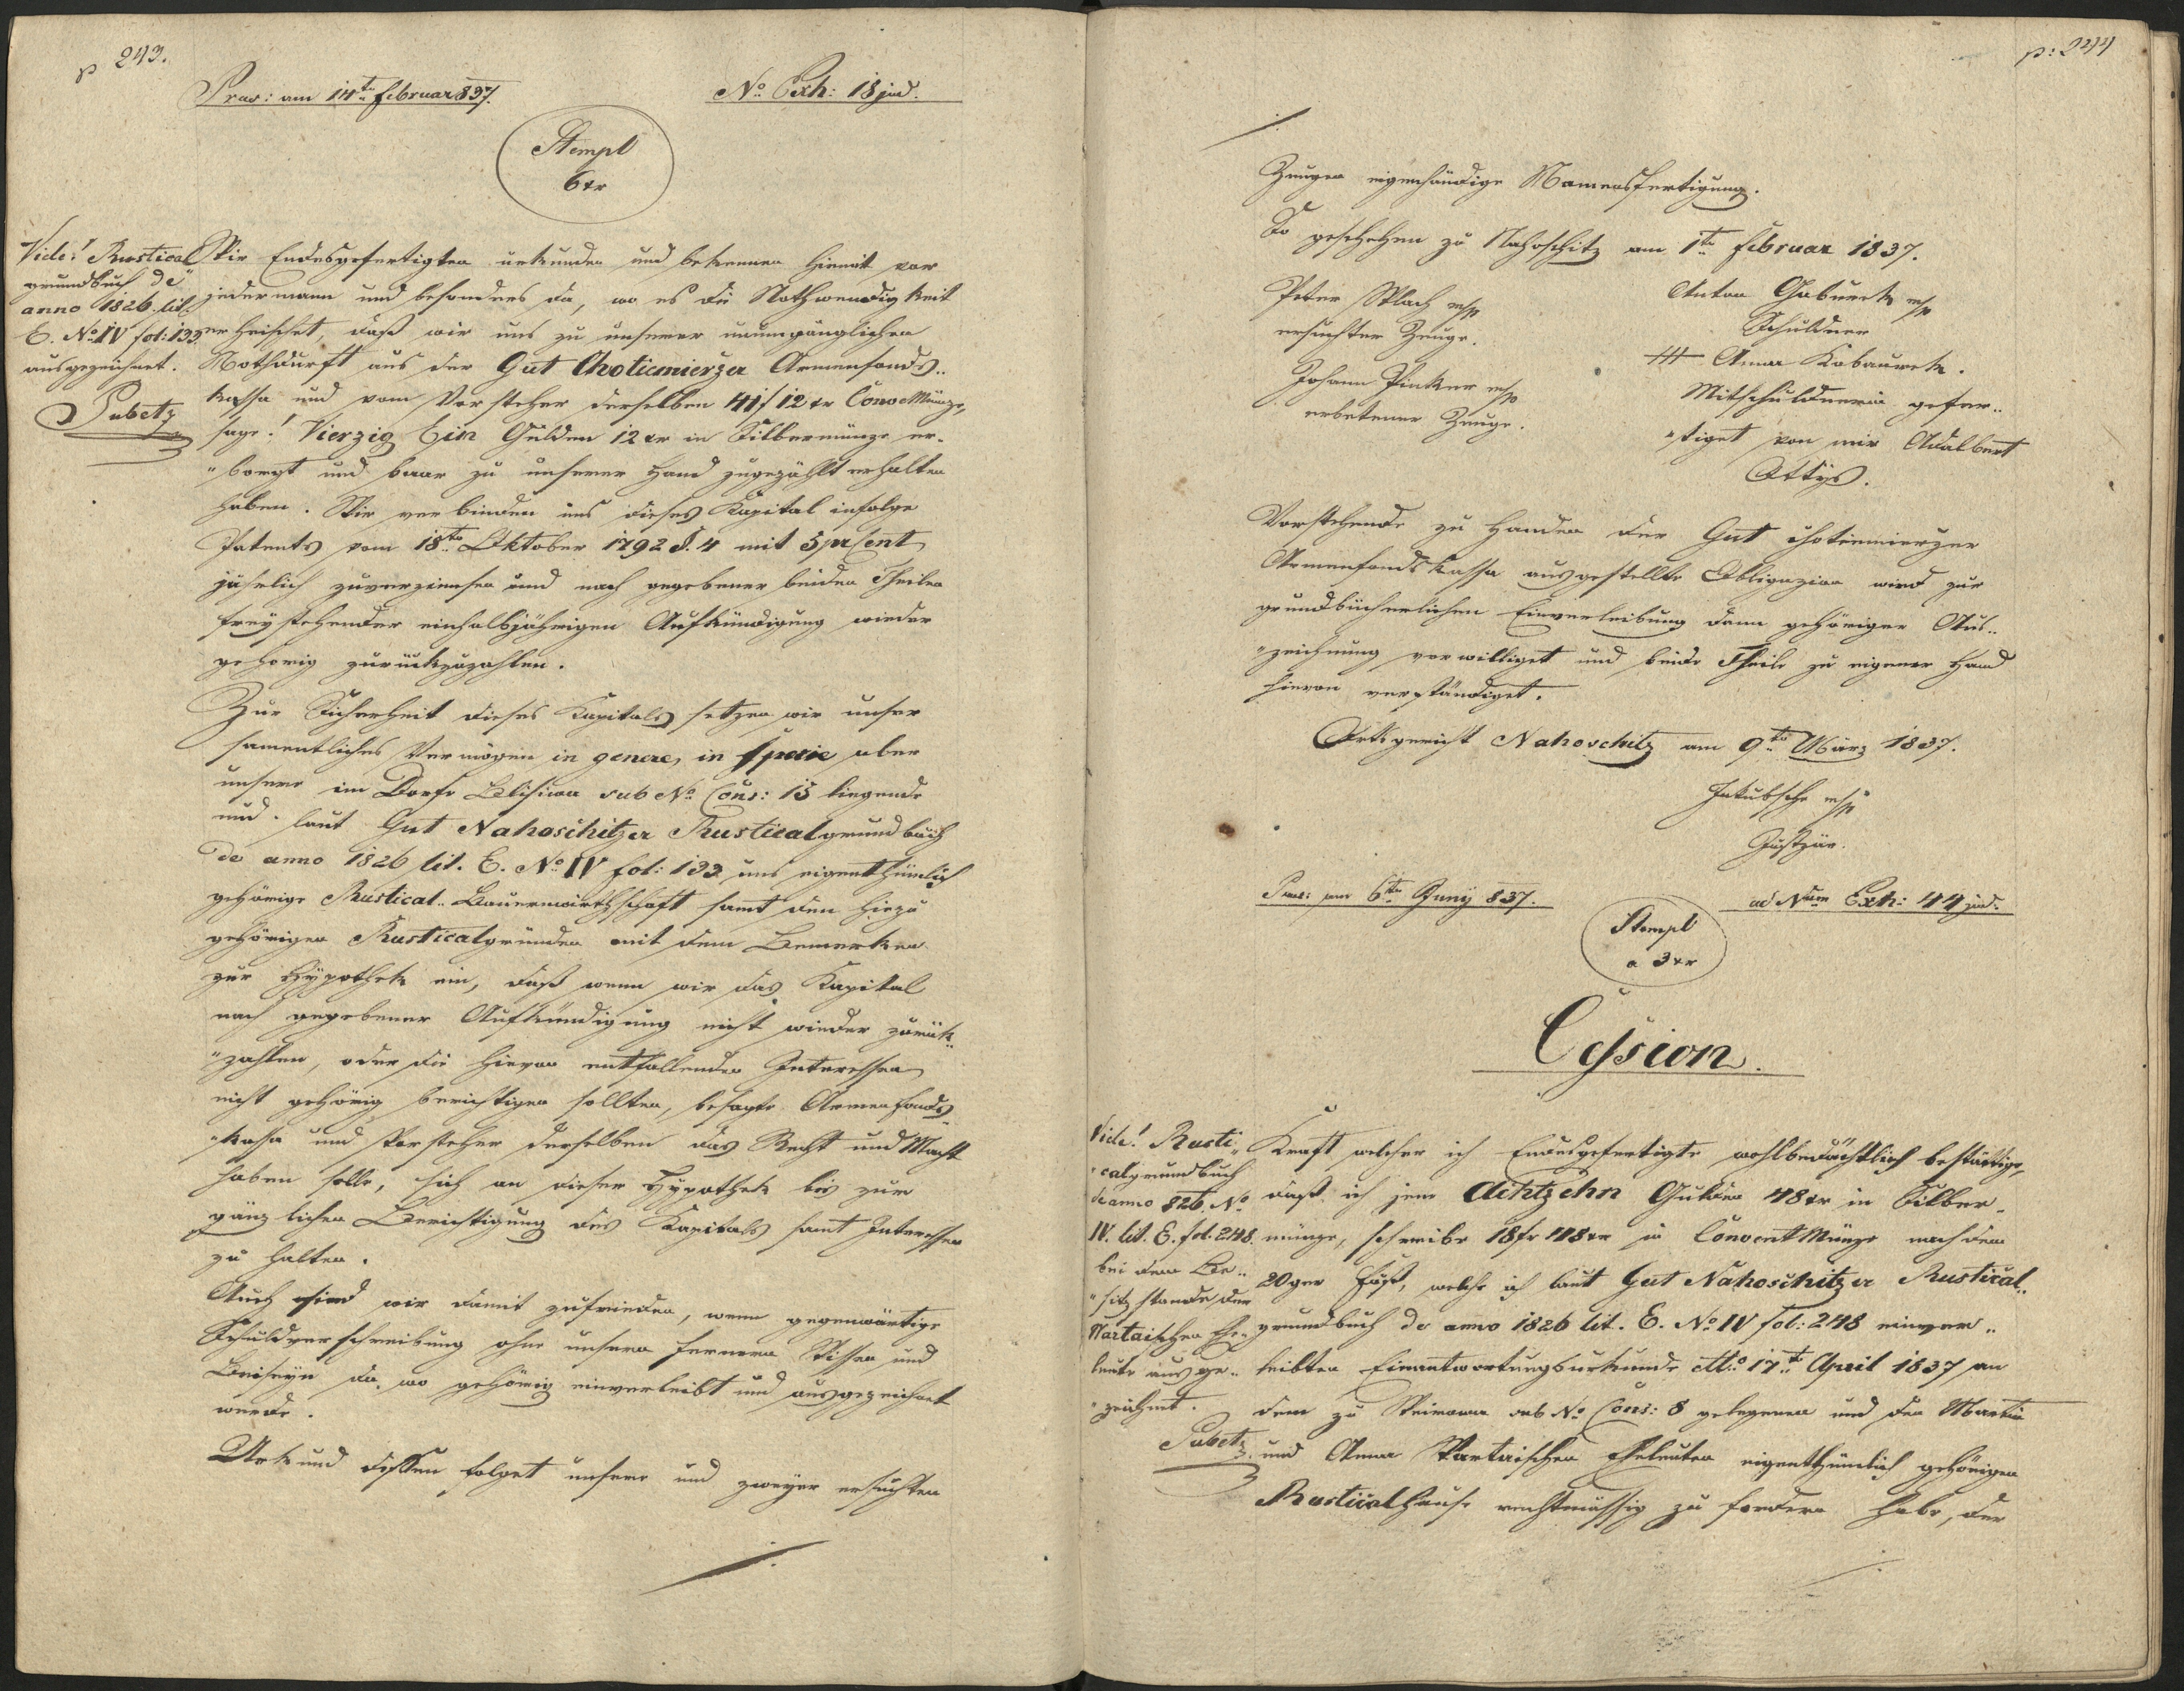 p 243.
Praes: am 14te Februar 837.
No Exh: 18 jud.
Stempl
6 xr
Vide! Rustical
grundbuch de
anno 1826. lit.
E. No IV fol: 133
ausgezeichnet.
Pubetz
Wir Endesgefertigten urkunden und bekennen hiemit vor
jedermann und besonders da, wo es die Nothwendigkeit
erheischet, daß wir uns zu unserer unumgänglichen
Nothdurft aus der Gut Chotiemierzer Armenfonds„
kassa und vom Vorsteher derselben 41 f 12 xr Conv Münze,
sage! Vierzig Ein Gulden 12 xr in Silbermünze er„
„borgt und baar zu unserer Hand zugezählt erhalten
haben. Wir verbinden uns dieses Kapital infolge
Patents vom 18ten Oktober 1792 §. 4 mit 5 prCent
jährlich zuverzinsen und nach gegebener beiden Theilen
freystehender einhalbjährigen Aufkündigung wieder
gehörig zurückzuzahlen.
Zur Sicherheit dieses Kapitals setzen wir unser
samentliches Vermögen in genere, in specie aber
unsere im Dorfe Blisiwa sub No Cons: 15 liegende
und laut Gut Nahoschitzer Rusticalgrundbuch
de anno 1826 lit. E. No IV fol: 133 uns eigenthümlich
gehörige Rustical„Bauernwirthschaft samt den hiezu
gehörigen Rusticalgründen mit dem Bemerken
zur Hypothek ein, daß wenn wir das Kapital
nach gegebener Aufkündigung nicht wieder zurük„
„zahlen, oder die hievon entfallenden Interessen
nicht gehörig berichtigen sollten, besagte Armenfonds„
„kassa und Vorsteher derselben das Recht und Macht
haben solle, sich an dieser Hypothek bis zur
gänzlichen Berichtigung des Kapitals samt Interessen
zu halten.
Auch sind wir damit zufrieden, wenn gegenwärtige
Schuldverschreibung ohne unsern fernern Wissen und
Beiseyn da wo gehörig einverleibt und ausgezeichnet
werde.
Urkund dessen folget unsere und zweyer ersuchten
./.
p: 244
./.
Zeugen eigenhändige Namensfertigung.
So geschehen zu Nahoschitz am 1te Februar 1837.
Peter Wlach mp
ersuchter Zeuge.
Johann Pinker mp
erbetener Zeuge.
Anton Gaburek mp
Schuldner
+++ Anna Kobaurek.
Mitschuldnerin gefer„
„tiget von mir Adalbert
Ottys.
Vorstehende zu Handen der Gut Chotiemierzer
Armenfondskassa ausgestellte Obligazion wird zur
grundbücherlichen Einverleibung dann gehöriger Aus„
„zeichnung verwilliget und beide Theile zu eigener Hand
hievon verständiget.
Ortsgericht Nahoschitz am 9te März 1837.
Jakubsche mp
Justizär.
Praes: am 6te Juny 837.
ad Num Exh: 44 jud.
Stempl
a 3 xr
Cession.
Vide! Rusti„
„calgrundbuch
de anno 826. No
IV. lit. E. fol. 248.
bei dem Be„
„sitzstande der
Wartaischen Ehe„
leute ausge„
„zeichnet.
Pubetz
Kraft welcher ich Endesgefertigte wohlbedächtlich bestättige,
daß ich jene Achtzehn Gulden 48 xr in Silber„
münze, schreibe 18 fr 48 xr in Convent Münze nach dem
20ger Fuß, welche ich laut Gut Nahoschitzer Rustical„
grundbuch de anno 1826 lit. E. No IV fol: 248 einver„
leibten Einantwortungsurkunde dtto 17te April 1837 an
dem zu sub No Cons: 8 gelegenen und den Martin
und Anna Wartaischen Eheleuten eigenthümlich gehörigen
Rusticalhause rechtmässig zu fordern habe, der
./.